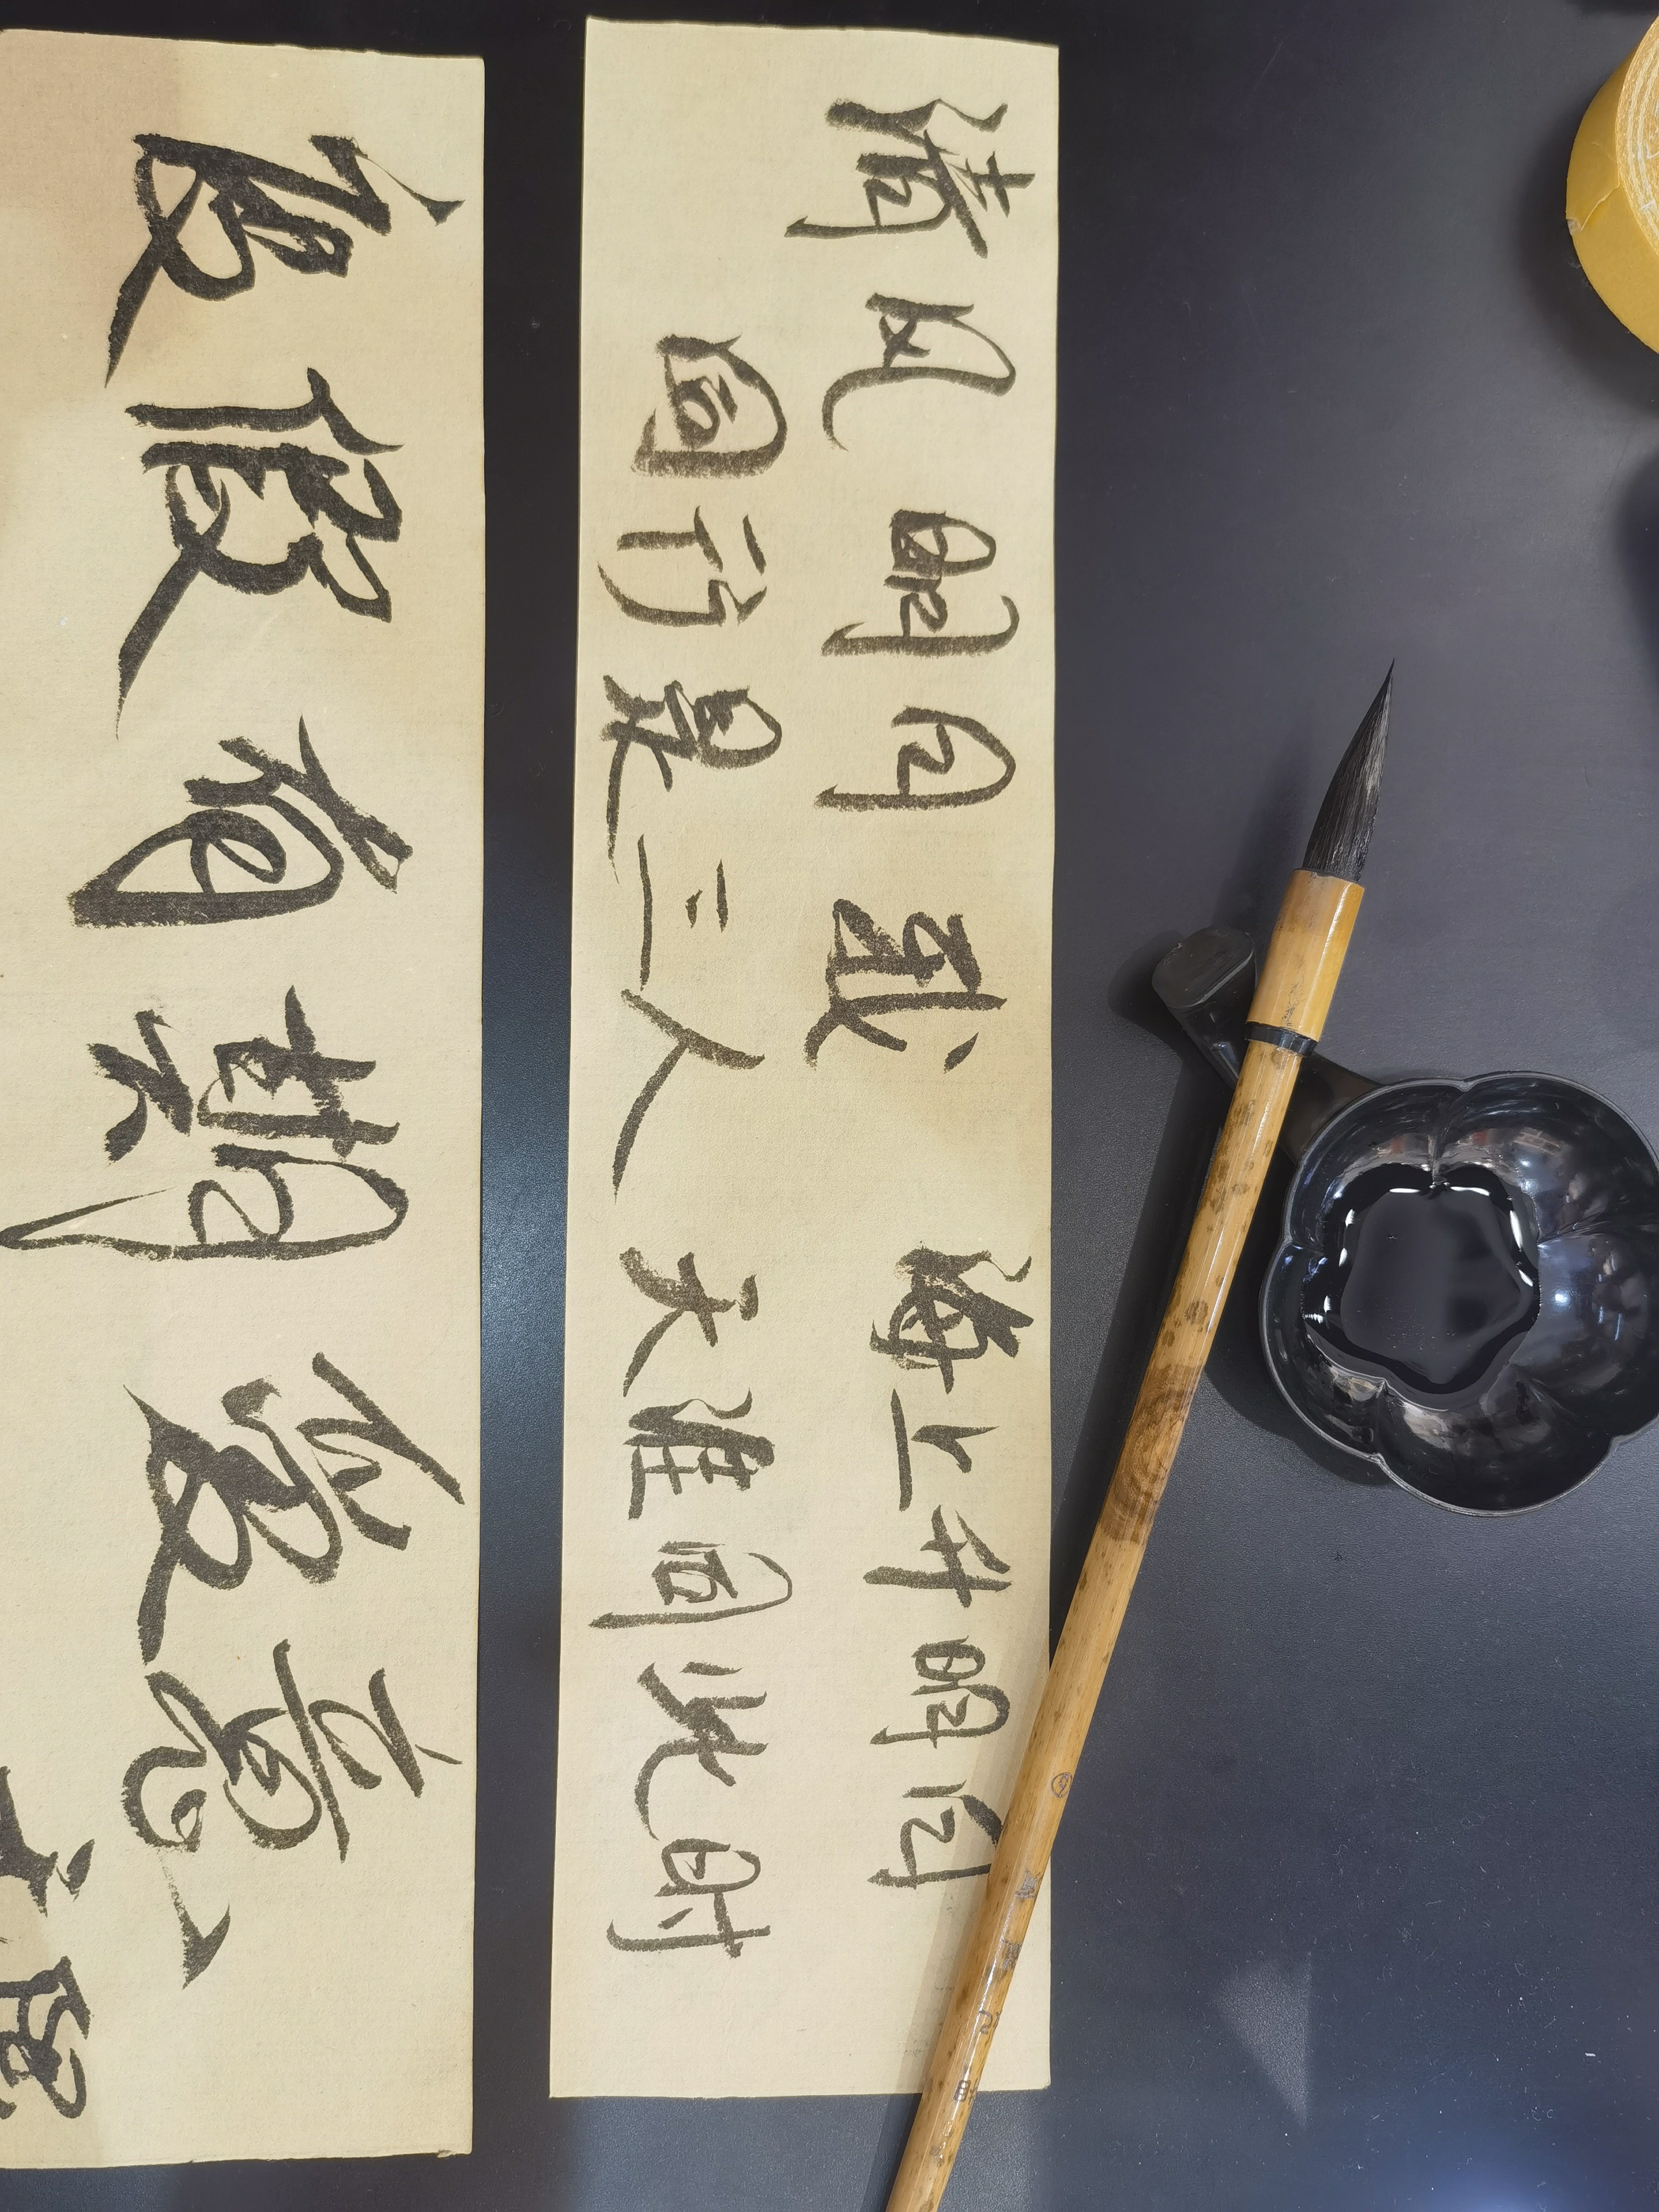 清风明月我 海上升明月
同行是三人 天涯同此时
假有期 意